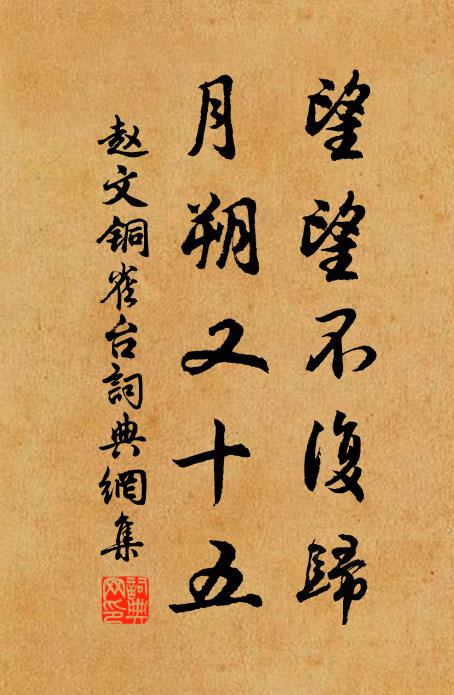 望望不復歸
月朔又十五
赵文铜雀台詞典網集
詞典網印